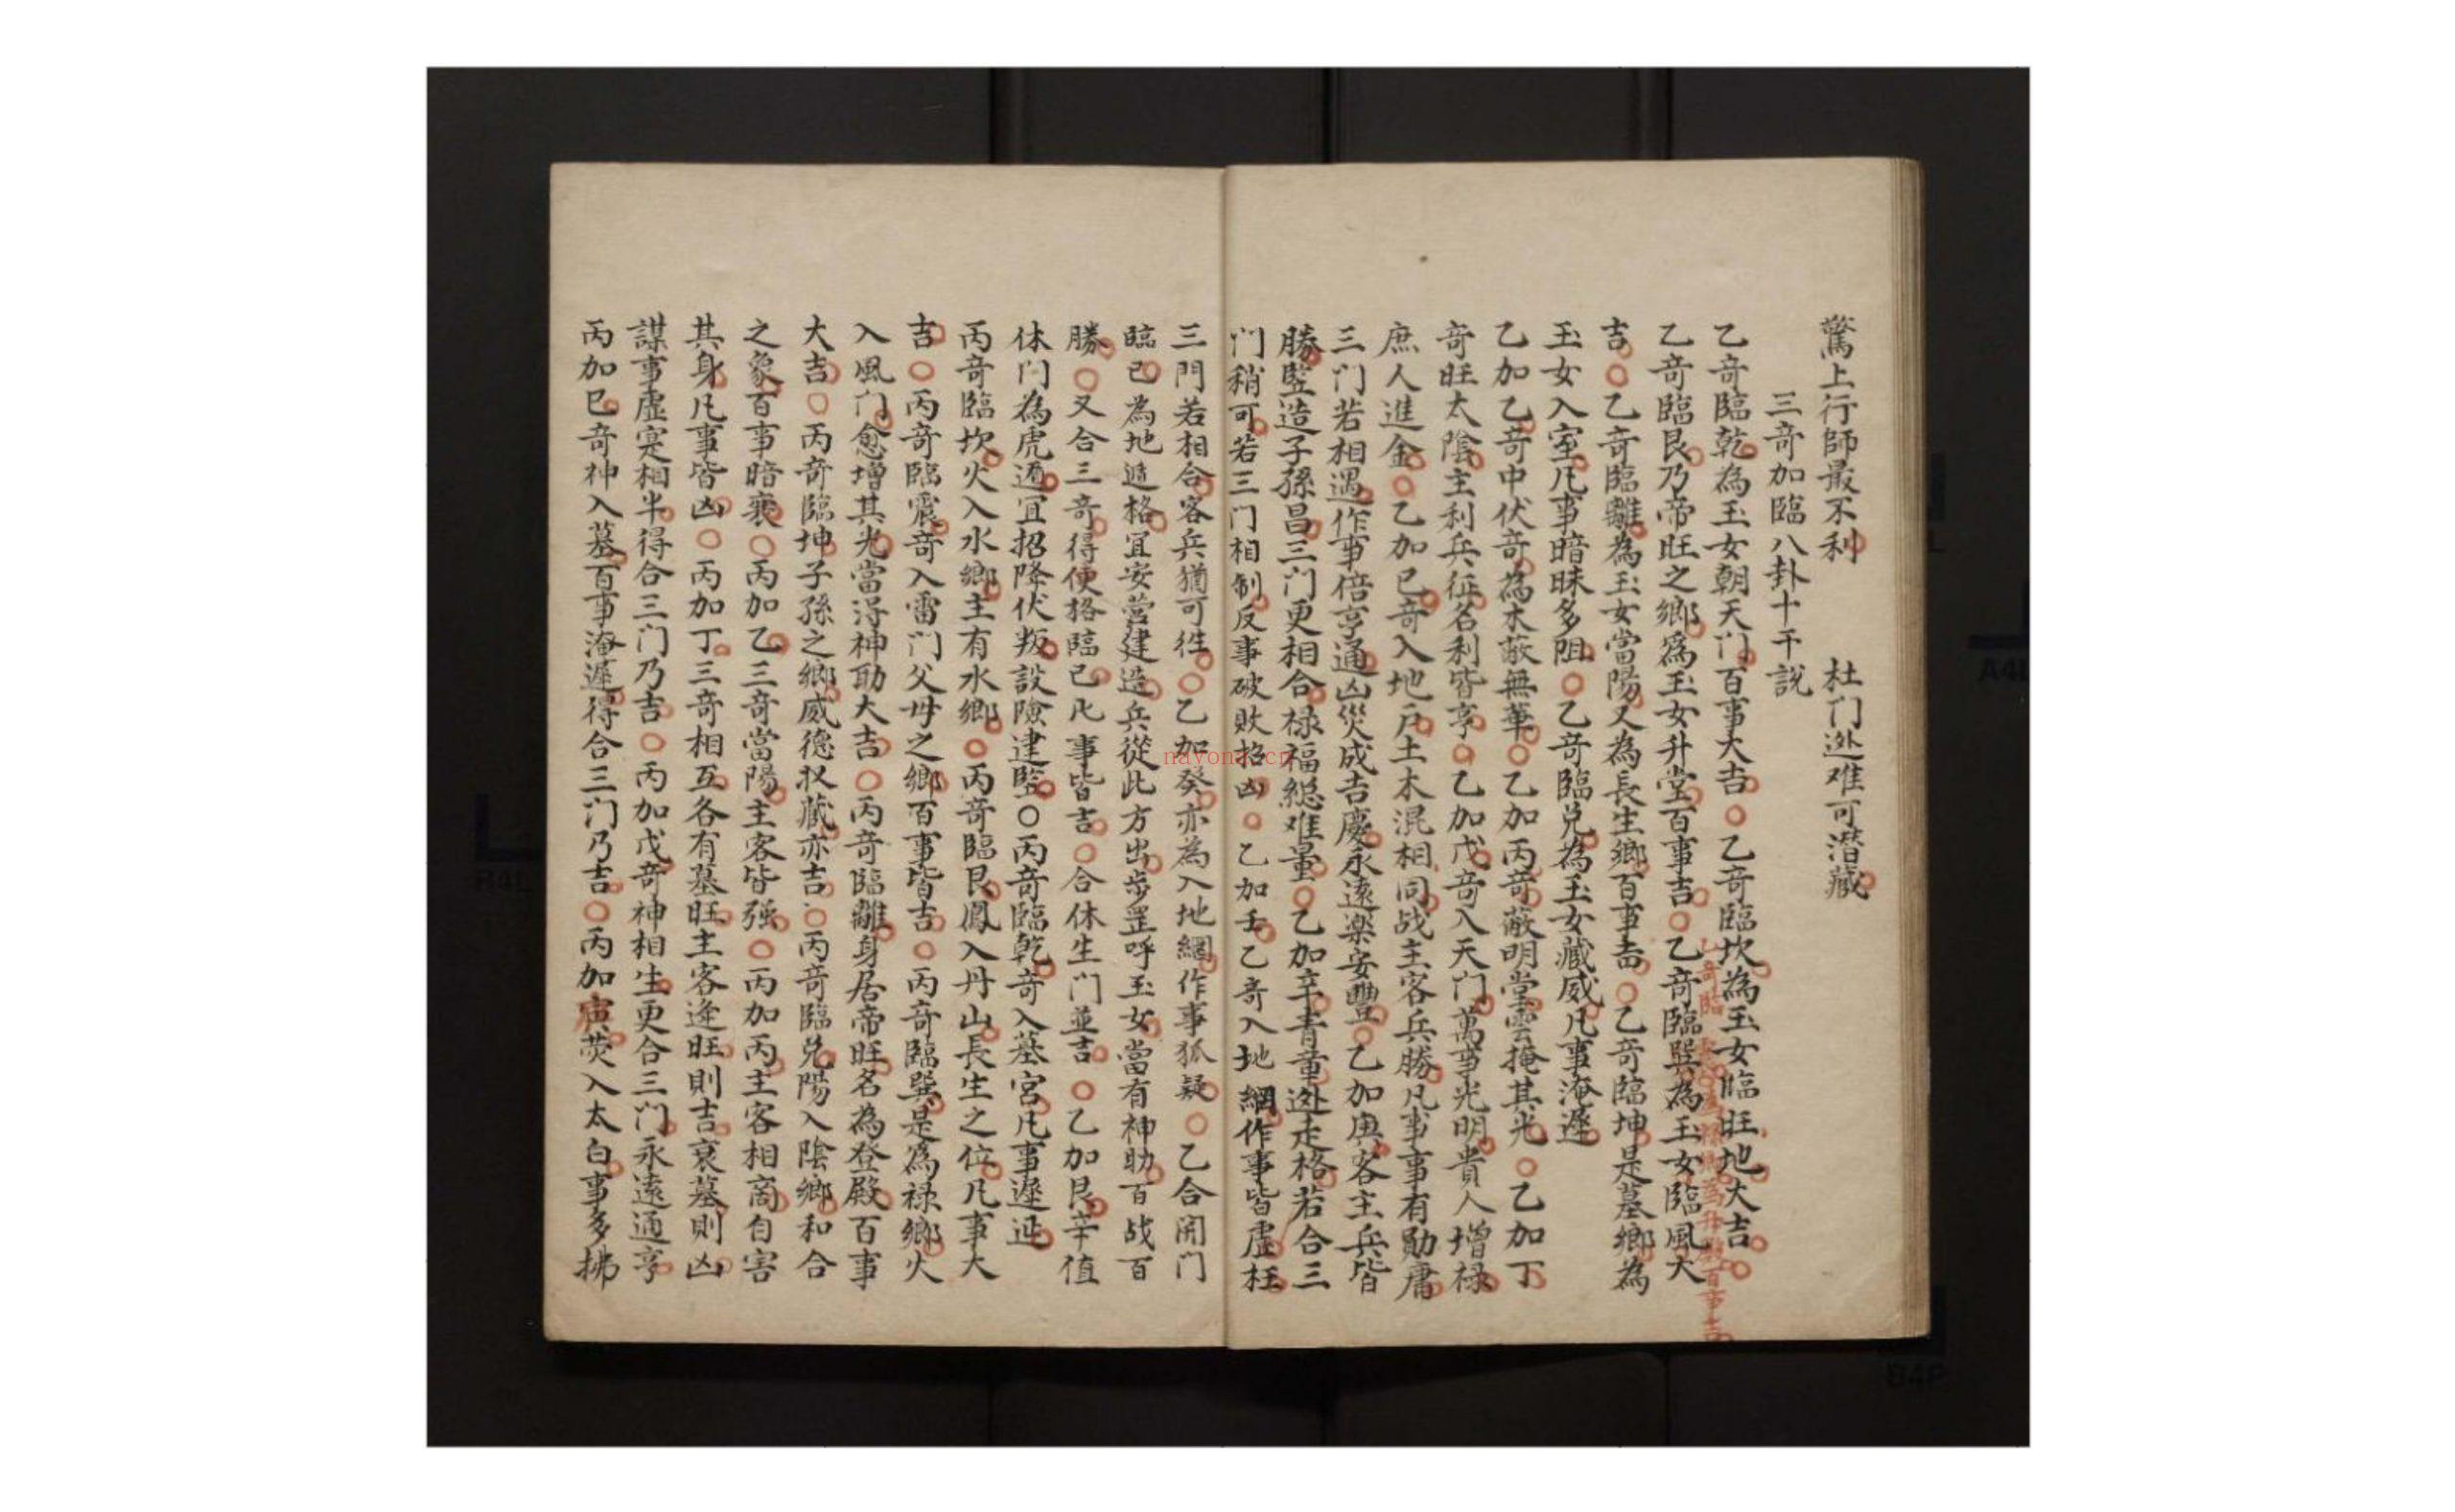 驚上行師最不利　杜门迯难可潜藏
三竒加臨八卦十干說
乙竒臨乾為玉女朝天门百事大吉〇乙竒臨坎為玉女臨旺地大吉〇
乙竒臨艮乃帝旺之鄉為玉女升堂百事吉〇乙竒臨巽為玉女臨風大
吉〇乙竒臨離為玉女當陽又為長生鄉百事吉〇乙竒臨坤是墓鄉為
玉女入室凢事暗昧多阻〇乙竒臨兑為玉女藏威凢事淹遲
乙加乙竒中伏竒為木蔽無華〇乙加丙竒蔽明堂雲掩其光〇乙加丁
竒旺太陰主利兵征名利皆亨〇乙加戊竒入天门萬事光明貴人增禄
庶人進金〇乙加己竒入地户土木混相同战主客兵勝凢事事有勛庸
三门若相遇作事倍亨通凶災成吉慶永遠楽安豐〇乙加庚客主兵皆
勝竪造子孫昌三门更相合禄福縂难量〇乙加辛青童迯走格若合三
门稍可若三门相制反事破敗招凶〇乙加壬乙竒入地網作事皆虚枉
三門若相合客兵猶可徃〇乙加癸亦為入地網作事狐疑〇乙合開门
臨己為地遁格宜安营建造兵從此方出步罡呼玉女當有神助百战百
勝〇又合三竒得使格臨己凢事皆吉〇合休生门並吉〇乙加艮辛值
休门為虎遁宜招降伏叛設險建竪〇丙竒臨乾竒入墓宫凢事遲延
丙竒臨坎火入水鄉主有水鄉〇丙竒臨艮鳳入丹山長生之位凢事大
吉〇丙竒臨震竒入雷门父母之鄉百事皆吉〇丙竒臨巽是為禄鄉火
入風门愈增其光當得神助大吉〇丙竒臨離身居帝旺名為登殿百事
大吉〇丙竒臨坤子孫之鄉威德収藏亦吉〇丙竒臨兑陽入陰鄉和合
之象百事暗衰〇丙加乙三竒當陽主客皆强〇丙加丙主客相啇自害
其身凢事皆凶〇丙加丁三竒相互各有墓旺主客逢旺則吉衰墓則凶
謀事虚寔相半得合三门乃吉〇丙加戊竒神相生更合三门永遠通亨
丙加己竒神入墓百事淹遲得合三门乃吉〇丙加庚荧入太白事多拂
nayona.cn